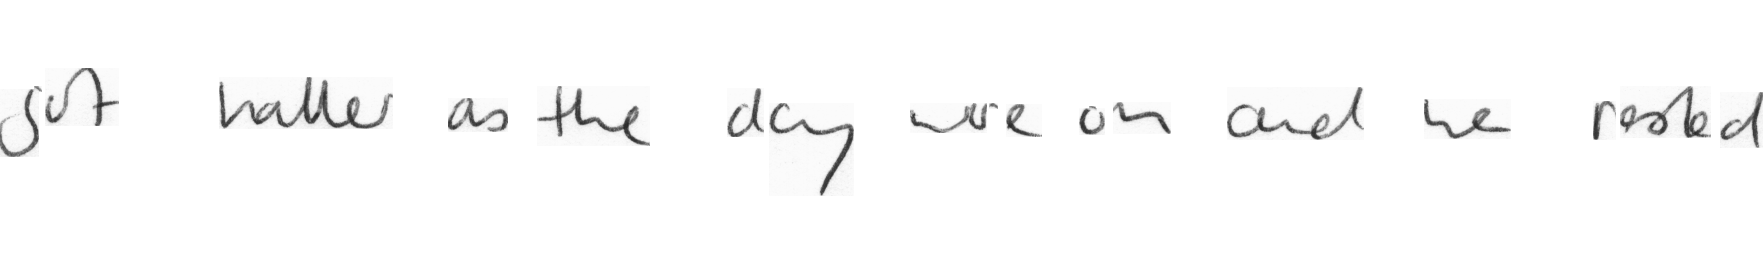 got hotter as the day wore on and he rested